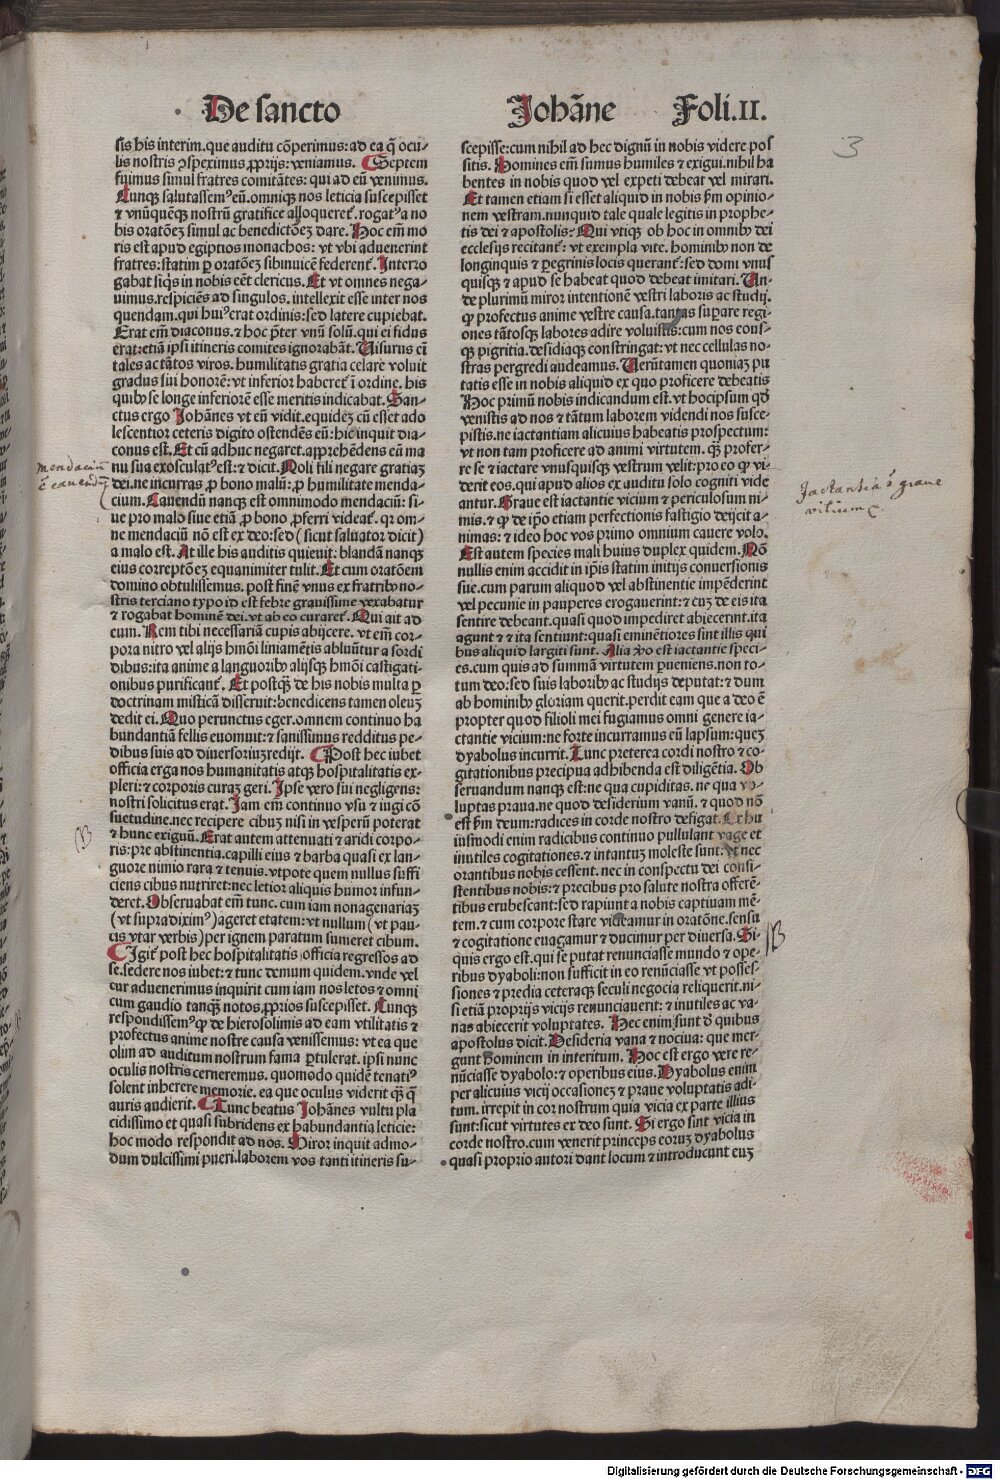 De sancto Johāne Foli.II.
3
sis his interim.que auditu cōperimus:ad ea q̄ ocu-
lis nostris ꝯspeximus ꝓprijs:veniamus. Septem
fuimus simul fratres comitātes: qui ad eū venimus.
Cunqꝫ salutassemꝰ eū.omniqꝫ nos leticia suscepisset
et vnūquēqꝫ nostrū gratifice alloqueret̄. rogatꝰa no
bis oratōeꝫ simul ac benedictōeꝫ dare. Hoc em̄ mo
ris est apud egiptios monachos: vt vbi aduenerint
fratres:statim ꝑ oratōeꝫ sibinuicē federent̄. Interro
gabat siqͥs in nobis eēt clericus. Et vt omnes nega-
uimus.respiciēs ad singulos. intellexit esse inter nos
quendam.qui huiꝰerat ordinis:sed latere cupiebat.
Erat em̄ diaconus.⁊ hoc p̄ter vnū solū.qui ei fidus
erat:etiā ipsi itineris comites ignorabāt. Uisurus em̄
tales ac tātos viros. humilitatis gratia celare voluit
gradus sui honorē:vt inferior haberet̄ ī ordine. his
quibꝫ se longe inferiorē esse meritis indicabat. San-
ctus ergo Johānes vt eū vidit.equideꝫ cū esset ado
lescentior ceteris digito ostendēs eū:hic inquit dia-
conus est. Et cū adhuc negaret.apprehēdens eū ma
nu sua exosculatꝰest:⁊ dicit. Noli fili negare gratiaꝫ
dei.ne incurras ꝓ bono malū:ꝓ humilitate menda-
cium. Cauendū nanqꝫ est omnimodo mendaciū: si-
ue pro malo siue etiā ꝓ bono ꝓferri videat̄. qꝛ om-
ne mendaciū nō est ex deo:sed (sicut saluator dicit)
a malo est. At ille his auditis quieuit: blandā nanqꝫ
eius correptōeꝫ equanimiter tulit. Et cum oratōem
domino obtulissemus. post finē vnus ex fratribꝫ no-
stris terciano typo id est febre grauissime vexabatur
⁊ rogabat hominē dei.vt ab eo curaret̄. Qui ait ad
eum. Rem tibi necessariā cupis abijcere. vt em̄ cor-
pora nitro vel alijs hmōi liniamētis abluūtur a sordi
dibus:ita anime a languoribꝫ alijsqꝫ hmōi castigati-
onibus purificant̄. Et postqꝫ̄ de his nobis multa ꝑ
doctrinam misticā disseruit:benedicens tamen oleuꝫ
dedit ei. Quo perunctus eger.omnem continuo ha
bundantiā fellis euomuit:⁊ sanissimus redditus pe-
dibus suis ad diuersoriuꝫ redijt. Post hec iubet
officia erga nos humanitatis atqꝫ hospitalitatis ex-
pleri:⁊ corporis curaꝫ geri. Ipse vero sui negligens:
nostri solicitus erat. Jam em̄ continuo vsu ⁊ iugi cō
suetudine.nec recipere cibuꝫ nisi in vesperū poterat
⁊ hunc exiguū. Erat autem attenuati ⁊ aridi corpo-
ris:pre abstinentia.capilli eius ⁊ barba quasi ex lan-
guore nimio rara ⁊ tenuis. vtpote quem nullus suffi
ciens cibus nutriret:nec letior aliquis humor infun-
deret. Obseruabat em̄ tunc. cum iam nonagenariaꝫ
(vt supradiximꝰ)ageret etatem:vt nullum (vt pau-
cis vtar verbis)per ignem paratum sumeret cibum.
Igit̄ post hec hospitalitatis officia regressos ad
se.sedere nos iubet:⁊ tunc demum quidem.vnde vel
cur aduenerimus inquirit cum iam nos letos ⁊ omni
cum gaudio tanqꝫ̄ notos.ꝓprios suscepisset. Cunqꝫ
respondissemꝰꝙ de hierosolimis ad eam vtilitatis ⁊
profectus anime nostre causa venissemus: vt ea que
olim ad auditum nostrum fama ꝑtulerat. ipsi nunc
oculis nostris cerneremus. quomodo quidē tenatiꝰ
solent inherere memorie. ea que oculus viderit qꝫ̄ q̄
auris audierit. Tunc beatus Johānes vultu pla
cidissimo et quasi subridens ex habundantia leticie:
hoc modo respondit ad nos. Miror inquit admo-
dum dulcissimi pueri.laborem vos tanti itineris su-
scepisse:cum nihil ad hec dignū in nobis videre pos
sitis. Homines em̄ sumus humiles ⁊ exigui.nihil ha
bentes in nobis quod vel expeti debeat vel mirari.
Et tamen etiam si esset aliquid in nobis ẜm opinio-
nem vestram.nunquid tale quale legitis in prophe-
tis dei ⁊ apostolis? Qui vtiqꝫ ob hoc in omnibꝫ dei
ecclesijs recitant̄: vt exempla vite. hominibꝫ non de
longinquis ⁊ ꝑegrinis locis querant̄:sed domi vnus
quisqꝫ ⁊ apud se habeat quod debeat imitari. Un-
de plurimū miror intentionē vestri laboris ac studij.
ꝙ profectus anime vestre causa.tantas suꝑare regi-
ones tātosqꝫ labores adire voluistis:cum nos eous-
qꝫ pigritia.desidiaqꝫ constringat: vt nec cellulas no-
stras pergredi audeamus. Uerūtamen quoniaꝫ pu
tatis esse in nobis aliquid ex quo proficere debeatis
Hoc primū nobis indicandum est.vt hocipsum qd̄
venistis ad nos ⁊ tātum laborem videndi nos susce-
pistis.ne iactantiam alicuius habeatis prospectum:
vt non tam proficere ad animi virtutem. qꝫ̄ profer-
re se ⁊ iactare vnusquisqꝫ vestrum velit:pro eo ꝙ vi-
derit eos.qui apud alios ex auditu solo cogniti vide
antur. Graue est iactantie vicium ⁊ periculosum ni-
mis.⁊ ꝙ de ip̄o etiam perfectionis fastigio deijcit a-
nimas: ⁊ ideo hoc vos primo omnium cauere volo.
Est autem species mali huius duplex quidem. Nō
nullis enim accidit in ip̄is statim initijs conuersionis
sue.cum parum aliquod vel abstinentie impēderint
vel pecunie in pauperes erogauerint:⁊ cuꝫ de eis ita
sentire debeant.quasi quod impediret abiecerint.ita
agunt ⁊ ita sentiunt:quasi eminētiores sint illis qui
bus aliquid largiti sunt. Alia v̄o est iactantie speci-
es.cum quis ad summā virtutem ꝑueniens.non to-
tum deo:sed suis laboribꝫ ac studijs deputat:⁊ dum
ab hominibꝫ gloriam querit.perdit eam que a deo ē
propter quod filioli mei fugiamus omni genere ia-
ctantie vicium:ne forte incurramus eū lapsum:queꝫ
dyabolus incurrit. Tunc preterea cordi nostro ⁊ co-
gitationibus precipua adhibenda est diligētia. Ob
seruandum nanqꝫ est:ne qua cupiditas. ne qua vo-
luptas praua.ne quod desiderium vanū. ⁊ quod nō
est ẜm deum:radices in corde nostro defigat. Ex hu
iusmodi enim radicibus continuo pullulant vage et
inutiles cogitationes.⁊ intantuꝫ moleste sunt:vt nec
orantibus nobis cessent. nec in conspectu dei consi-
stentibus nobis:⁊ precibus pro salute nostra offerē-
tibus erubescant:sed rapiunt a nobis captiuam mē-
tem.⁊ cum corpore stare videamur in oratōne.sensu
⁊ cogitatione euagamur ⁊ ducimur per diuersa. Si-
quis ergo est.qui se putat renunciasse mundo ⁊ ope-
ribus dyaboli:non sufficit in eo renūciasse vt posses-
siones ⁊ predia ceteraqꝫ seculi negocia reliquerit.ni-
si etiā proprijs vicijs renunciauerit: ⁊ inutiles ac va-
nas abiecerit voluptates. Hec enim sunt d̄ quibus
apostolus dicit. Desideria vana ⁊ nociua: que mer-
gunt hominem in interitum. Hoc est ergo vere re-
nūciasse dyabolo:⁊ operibus eius. Dyabolus enim
per alicuius vicij occasioneꝫ ⁊ praue voluptatis adi-
tum. irrepit in cor nostrum quia vicia ex parte illius
sunt:sicut virtutes ex deo sunt. Si ergo sint vicia in
corde nostro.cum venerit princeps eoruꝫ dyabolus
quasi proprio autori dant locum ⁊ introducunt euꝫ
mendaciū
ē cauendū
Jactantia ē graue
vitium
B
B
Digitalisierung gefördert durch die Deutsche Forschungsgemeinschaft - DFG